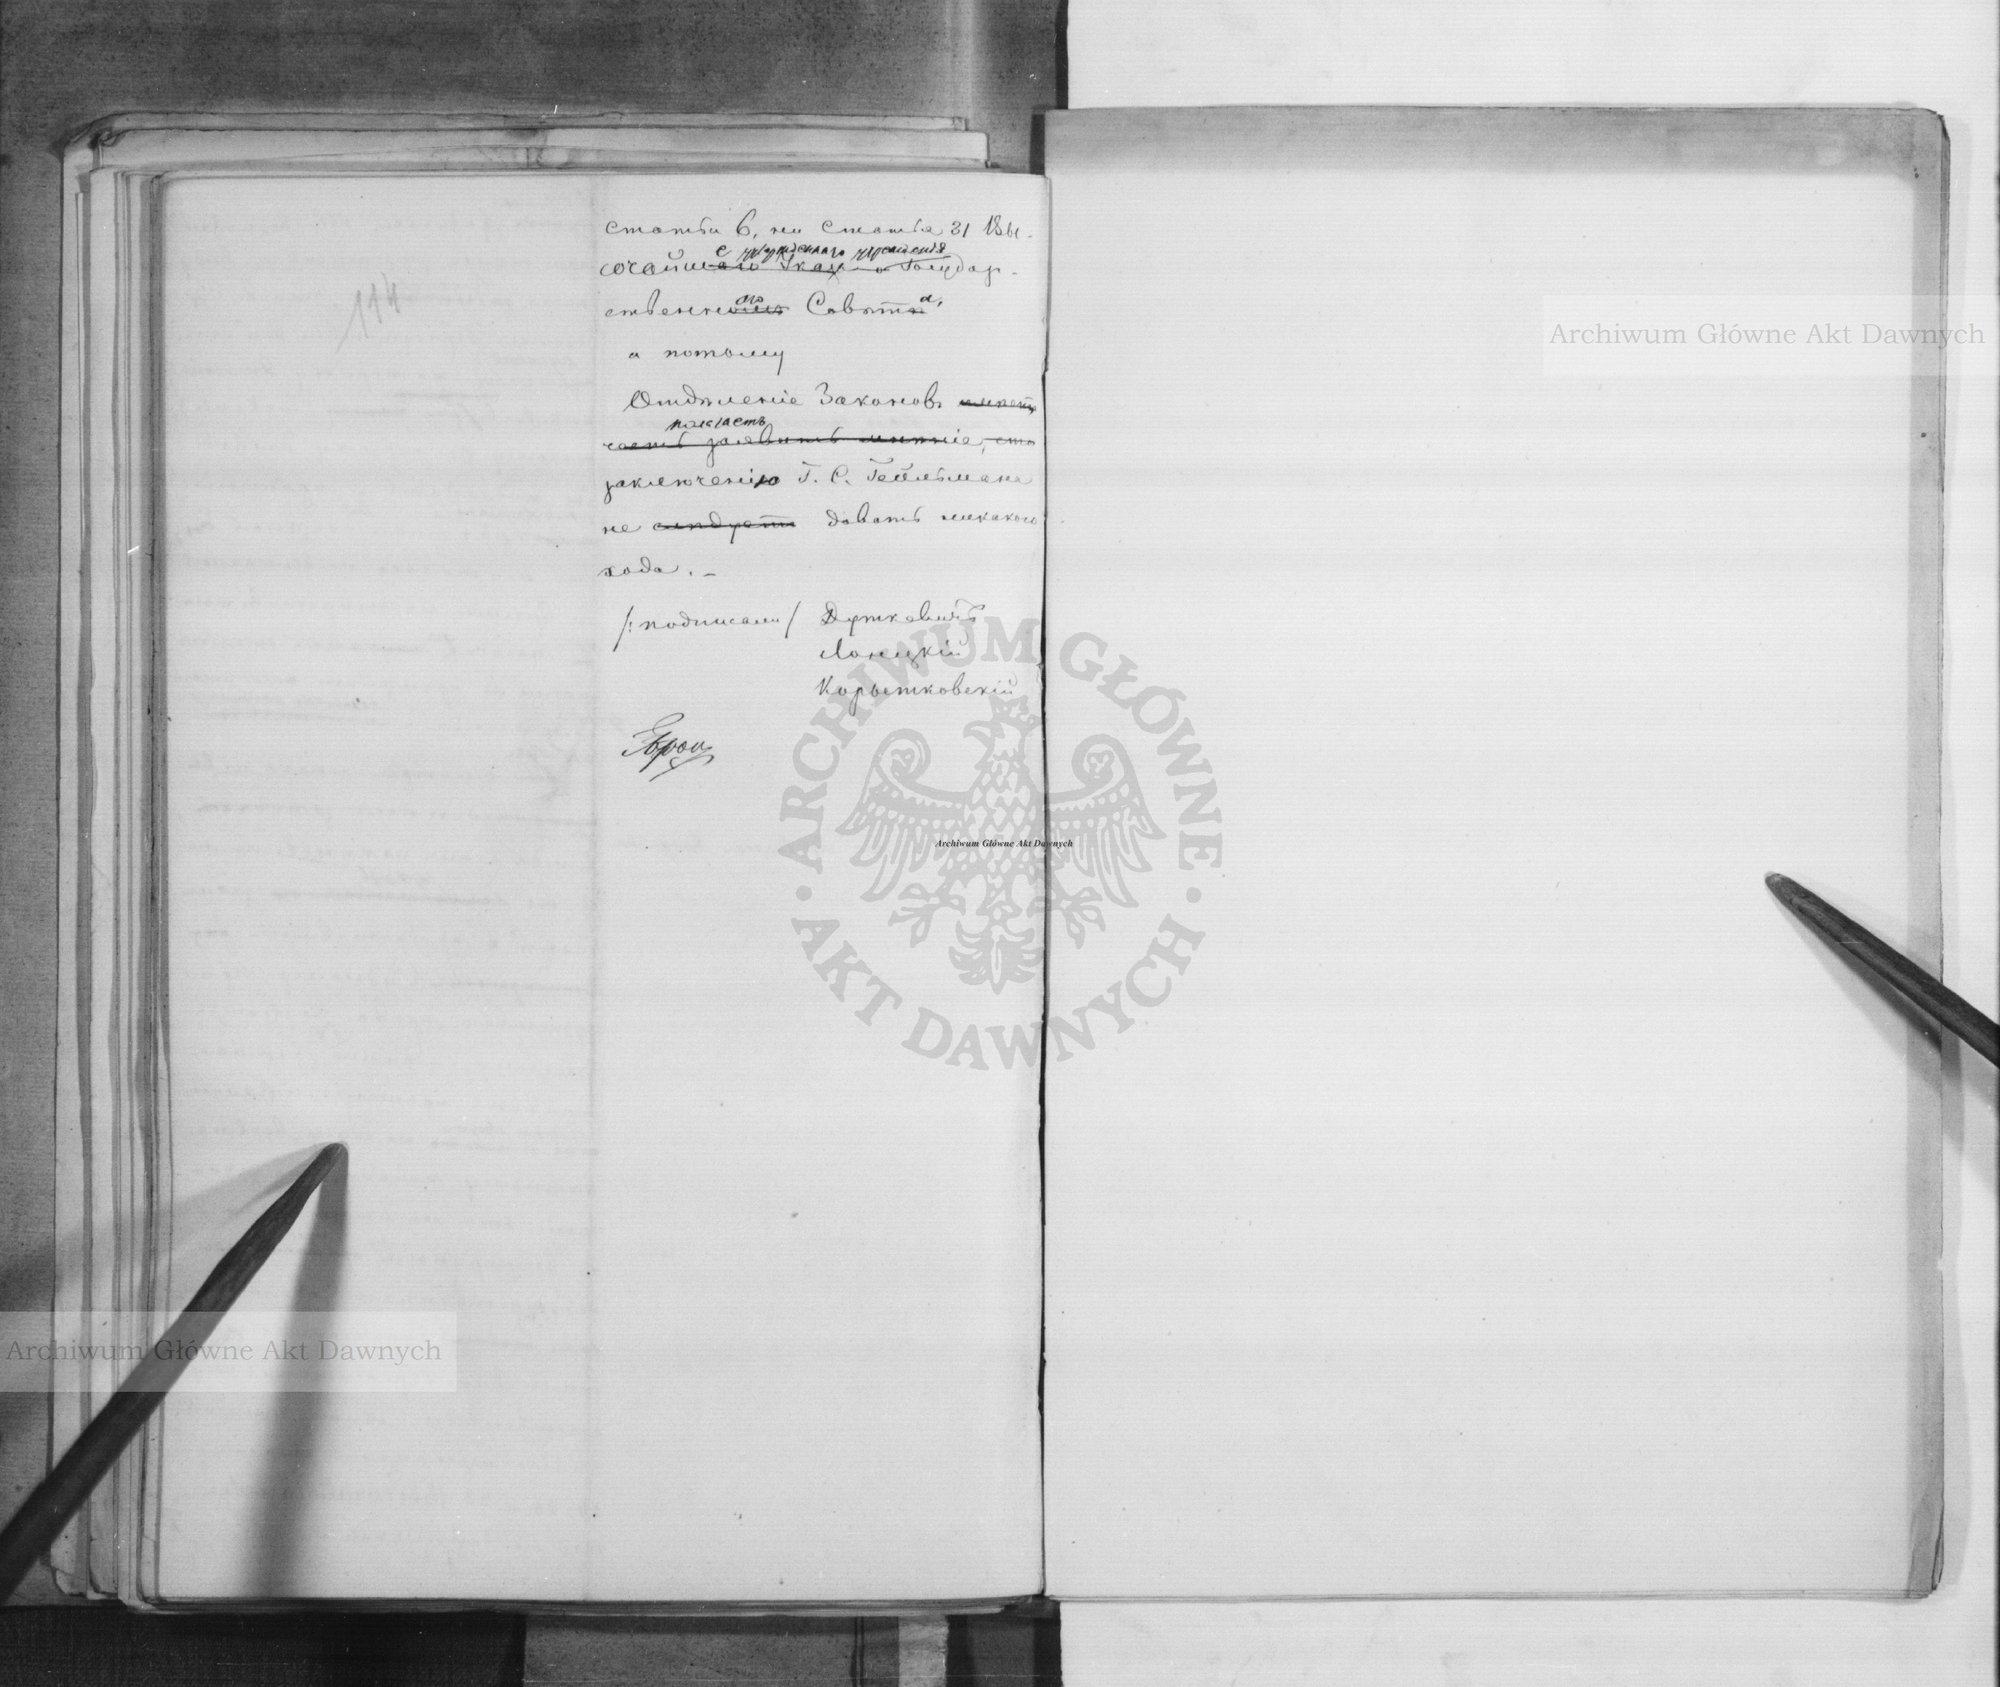 114
статьи 6, ни статья 31 Вы-
е учрежденнаго учрежденія
сочайшаго Указа о Государ-
ственномъ Совѣтѣ
аго а,
а потому
Отдѣленіе Законовъ
полагаетъ
часть заявить мнѣніе, что
заключенію Т. С. Гейльмана
не слѣдуетъ давать никакого
хода. —
/: подписали / Дуткевичъ
Лонцкій
Корытковскій
Archiwum Główne Akt Dawnych
ARCHIWUM GŁÓWNE AKT DAWNYCH
Archiwum Główne Akt Dawnych
Archiwum Główne Akt Dawnych